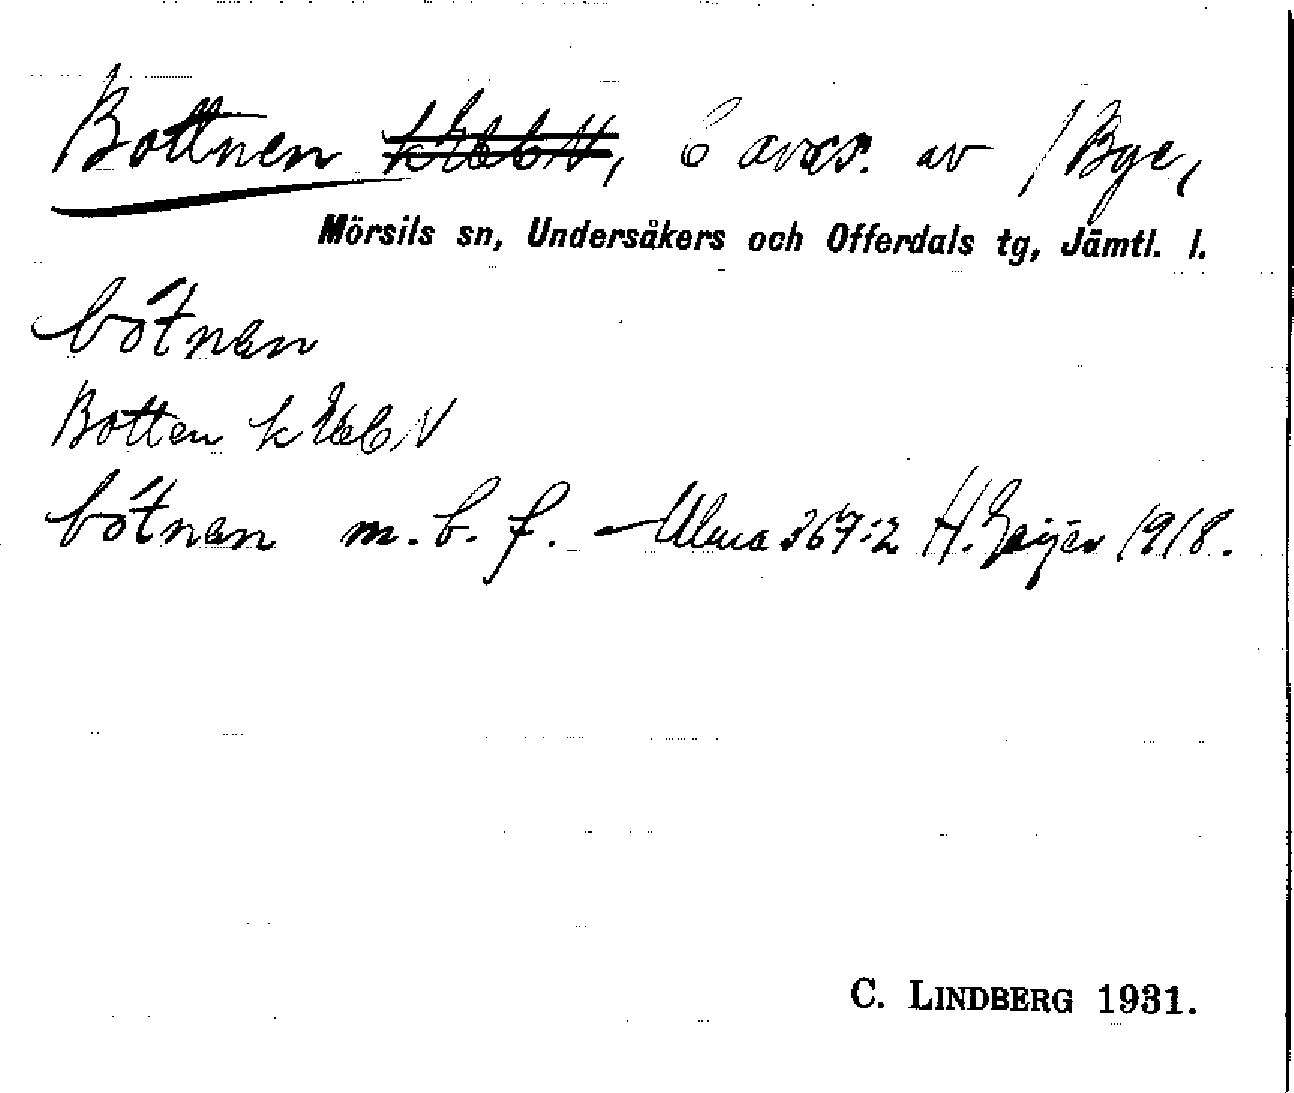 Bottnen, 6 avs. av /Bye,
Mörsils sn, Undersåkers och Offerdals tg, Jämtl. l.
bótnen
Botten k
bótnen m. b. f. — Ulma 367:2 H. Geijer 1918.
C. LINDBERG 1931.